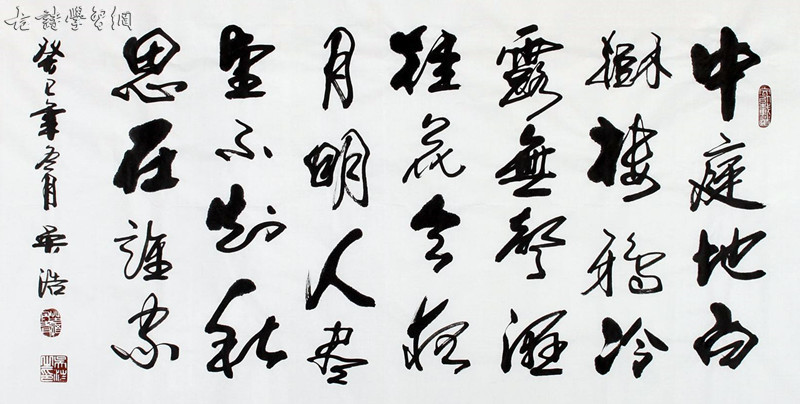 中庭地白
樹棲鴉冷
露無聲濕
桂花今夜
月明人盡
望不知秋
思在誰家
癸巳年冬月 吳浩
古詩學習網